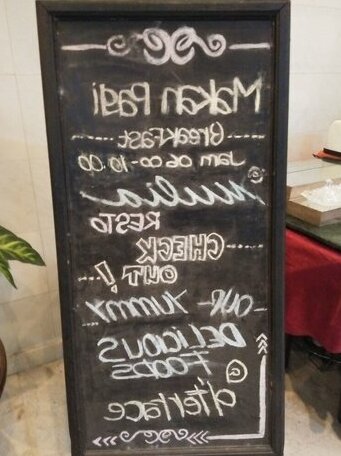 Makan Pagi
BreakFast
Jam 06.00-10.00
@
Mulia
RESTO
CHECK
OUT!
OUR YUMMY
DELICIOUS
FOODS
@